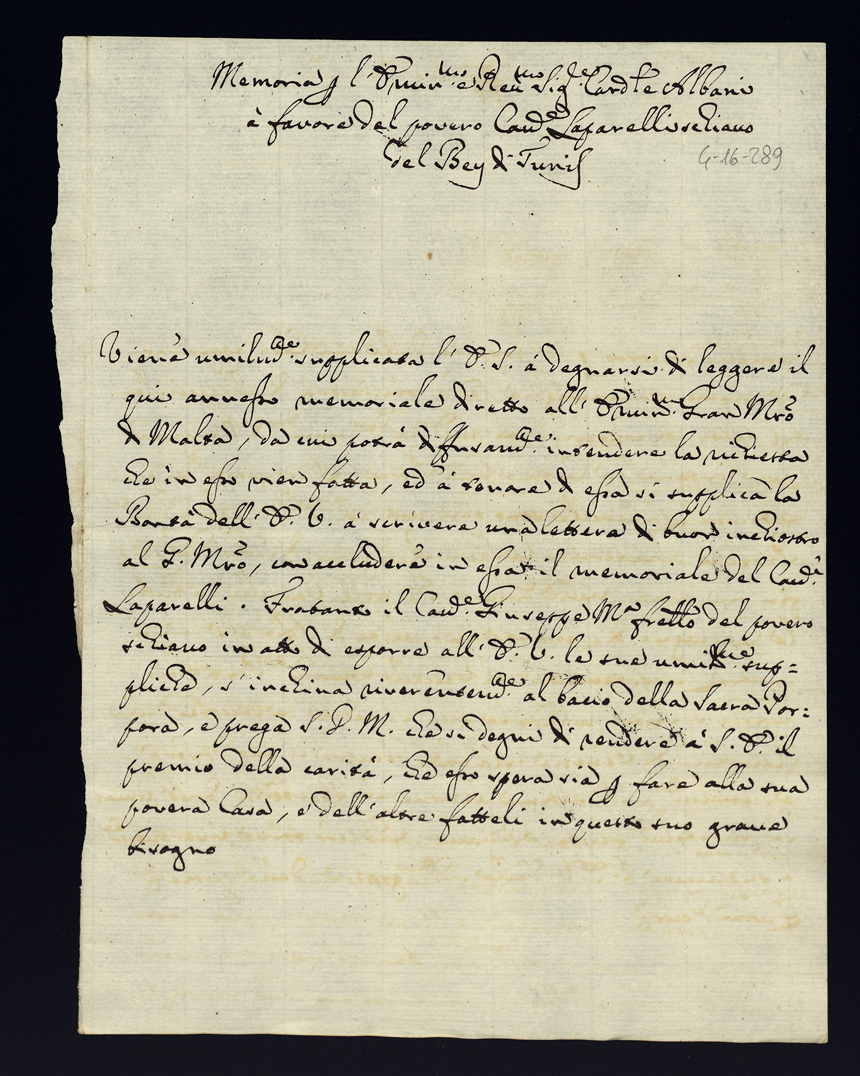 Memoria p l'Emin.mo e Reu.mo Sig.e Cardle Albani
à fauore del pouero Cau.e Laparelli schiauo
del Bey di Tunis
4-16-289
Viene umilm.e supplicata l'E. S. à degnarsi di leggere il
qui annesso memoriale diretto all'Emin.mo Gran Mro
di Malta, da cui potrà diffusam.e intendere la richiesta
che in esso vien fatta, ed à tenore di essa si supplica la
Bontà dell'E. V. à scriuere una lettera di buon inchiostro
al G. Mro, con accludere in essa il memoriale del Cau.e
Laparelli. Fratanto il Cau.e Giuseppe Ma frello del pouero
schiauo in atto di esporre all'E. V. le sue umil.me sup=
pliche, s'inchina riuerentem.e al bacio della Sacra Por=
pora, e prega S. D. M. che si degni di rendere à S. E. il
premio della carità, che esso spera sia p fare alla sua
pouera Casa, e dell'altre fatteli in questo suo graue
bisogno